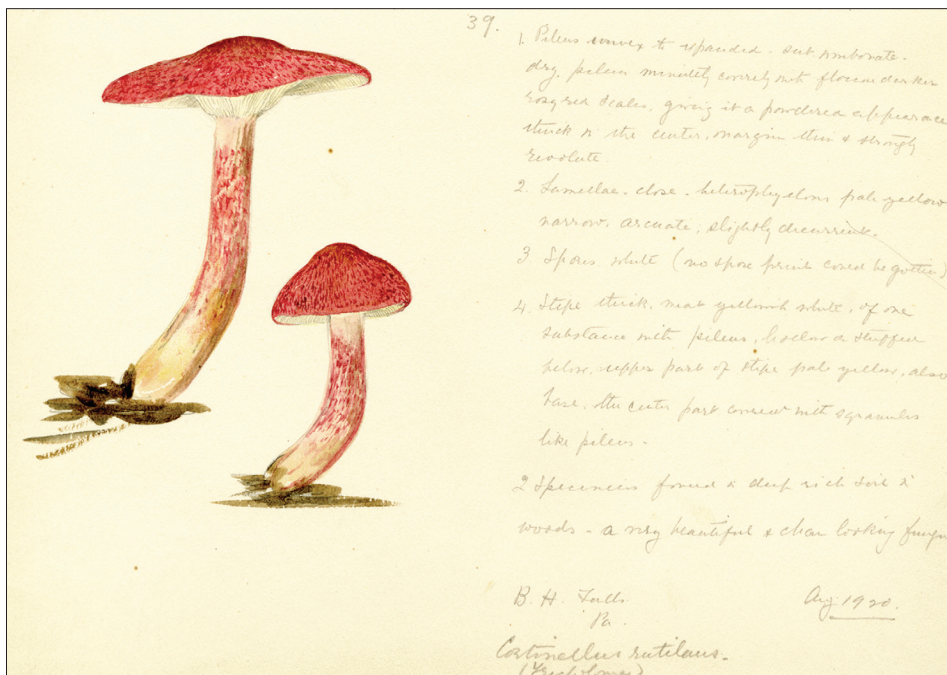 39.
1. Pileus convex to expanded - sub umbonate.
dry, pileus minutely covered with floccose darker
rosy red scales, giving it a powdered appearance
thick in the center, margin thin & strongly
revolute
2. Lamellae - close - heterophyllous pale yellow
narrow, arcuate, slightly decurrent.
3. Spores white (no spore print could be gotten)
4. Stipe thick, meat yellowish white, of one
substance with pileus, hollow or stuffed
below, upper part of stipe pale yellow, also
base, the center part covered with squamules
like pileus.
2 Specimens found in deep rich soil in
woods - a very beautiful & clean looking fungu
B. H. Falls
Pa.
Aug 1920.
Cortinellus rutilans.